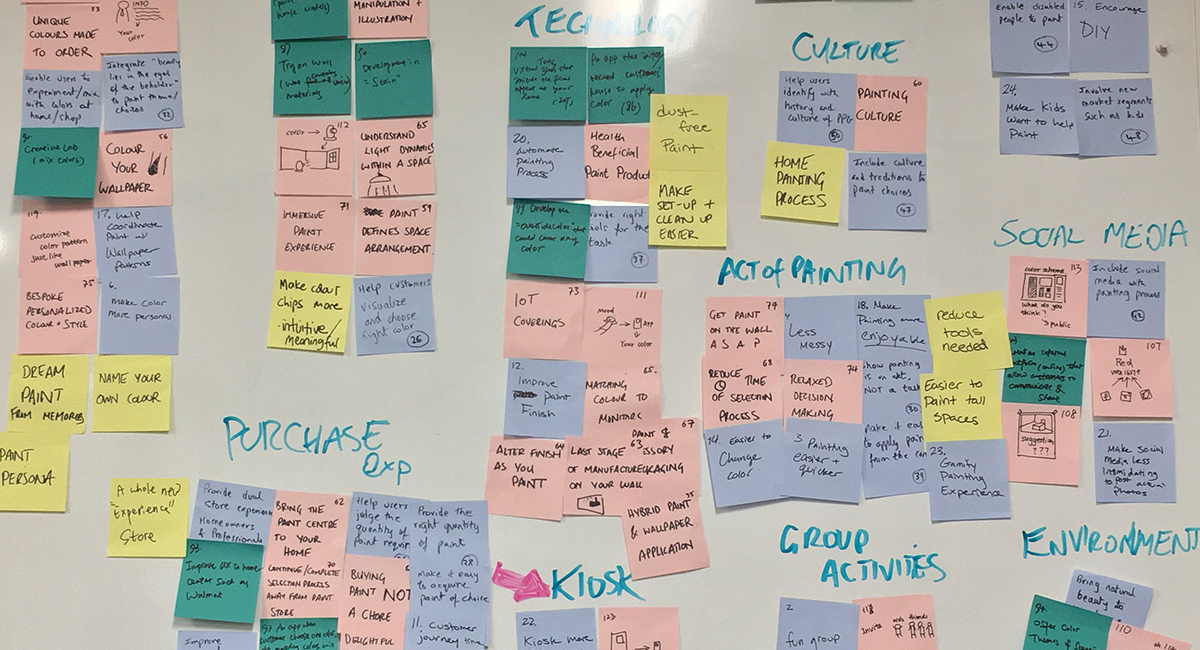 UNIQUE
COLOURS MADE
TO ORDER
INFO
Your color
Enable users to
experiment/mix
with colors at
home/shop
Integrate "beauty
lies in the eyes
of the beholder"
to paint themes/
choices
32
Creative Lab
(mix colors)
56
COLOUR
YOUR
WALLPAPER
119.
customize
color pattern
just like wallpaper
17. help
Coordinate
Paint w/
Wallpaper
Patterns
75
BESPOKE
PERSONALIZED
COLOUR + STYLE
6.
make color
more personal
DREAM
PAINT
FROM MEMORIES
NAME YOUR
OWN COLOUR
PAINT
PERSONA
MANIPULATION +
ILLUSTRATION
Try on wall
Development in
"Stain"
112
COLOR
65
UNDERSTAND
LIGHT DYNAMICS
WITHIN A SPACE
71
IMMERSIVE
PAINT
EXPERIENCE
59
PAINT
DEFINES SPACE
ARRANGEMENT
Make colour
chips more
intuitive/
meaningful
Help customers
visualize
and choose
right color
26
PURCHASE
Exp
A whole new
"Experience"
Store
Provide dual
store experience
Homeowners
& Professionals
Improve UX to home
Center such as
Walmart
Improve
62
BRING THE
PAINT CENTRE
TO YOUR
HOME
70
CONTINUE/COMPLETE
SELECTION PROCESS
AWAY FROM PAINT
STORE
Help users
judge the
quantity of
paint
BUYING
PAINT NOT
A CHORE
DELIGHTFUL
Provide the
right quantity
of paint
28
make it easy
to acquire
paint of choice
11. Customer
journey time
TECHNOLOGY
20.
automate
Painting
Process
Health
Beneficial
Paint Product
dust-
free
Paint
MAKE
SET-UP +
CLEAN UP
EASIER
99. Develop the
color
provide right
tools for the
task
37
73
IoT
COVERINGS
111
Mood
App
Your color
12.
Improve
Paint
Finish
65.
MATCHING
COLOUR TO
MONITOR
64
ALTER FINISH
AS YOU
PAINT
63
LAST STAGE
OF MANUFACTURE
ON YOUR WALL
67
PAINT &
35
HYBRID PAINT
& WALLPAPER
APPLICATION
KIOSK
22.
Kiosk more
123
CULTURE
Help users
identify with
history and
culture of PPG
50
60
PAINTING
CULTURE
HOME
PAINTING
PROCESS
Include culture
and traditions to
paint choices
47
ACT of PAINTING
74
GET PAINT
ON THE WALL
ASAP
Less
Messy
18. Make
Painting more
enjoyable
reduce
tools
needed
68
REDUCE TIME
OF SELECTION
PROCESS
74
RELAXED
DECISION
MAKING
show painting
is an art,
Not a task
30
Easier to
Paint tall
spaces
14. Easier to
Change
color
3 Painting
easier +
quicker
make it easy
to apply paint
from the can
39
23.
Gamify
Painting
Experience
GROUP
ACTIVITIES
2
fun group
118
Invite
friends
Enable disabled
people to paint
44
15. Encourage
DIY
24.
Make Kids
want to help
Paint
Involve new
market segments
Such as kids
48
SOCIAL MEDIA
113
color scheme
What do you
think?
→ public
Include social
media with
painting process
allow customers to
communicate &
share
107
Red
108
suggestion
???
21.
Make Social
media less
Intimidating
to Post actual
Photos
ENVIRONMENT
Bring natural
beauty to
94
Offer Color
110